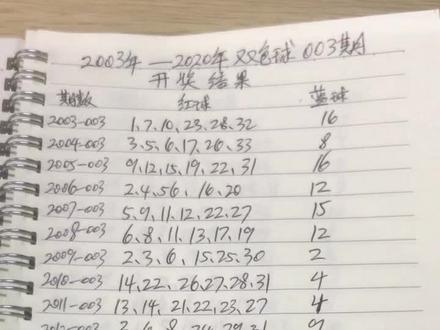 2003年—2020年双色球003期
开奖结果
期数 红球 蓝球
2003-003 1.7.10、23.28.32 16
2004-003 3.5.6.17.26.33 8
2005-003 9.12.15.19.22.31 16
2006-003 2.4.56、16.20 12
2007-003 5.9.11.12.22.27 15
2008-003 6.8.11.13.17.19 12
2009-003 2.3.6、15.25.30 2
2010-003 14.22、26.27.28.31 4
2011-003 13.14、21.22.23.27 4